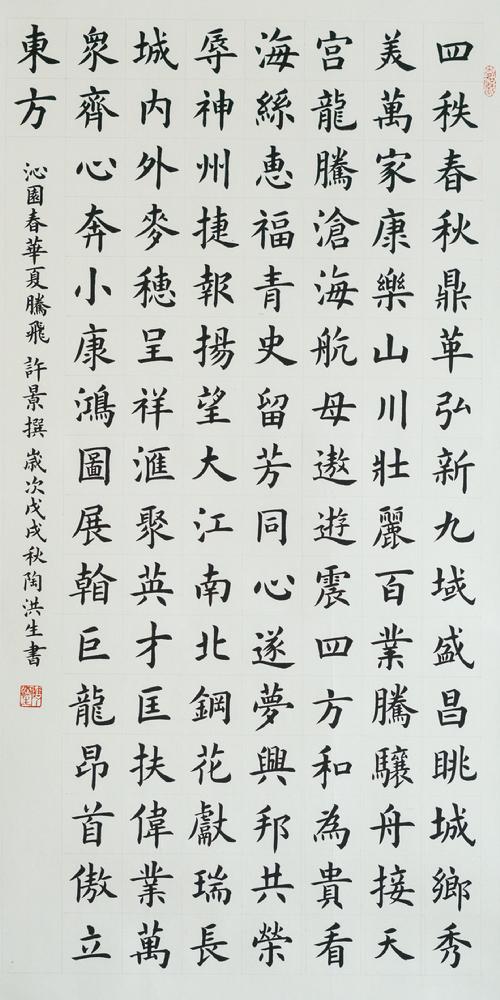 四秩春秋鼎革弘新九域盛昌眺城鄉秀
美萬家康樂山川壯麗百業騰驤舟接天
宮龍騰滄海航母遨遊震四方和為貴看
海絲惠福青史留芳同心遂夢興邦共榮
辱神州捷報揚望大江南北鋼花獻瑞長
城內外麥穗呈祥滙聚英才匡扶偉業萬
衆齊心奔小康鴻圖展翰巨龍昂首傲立
東方
沁園春華夏騰飛 許景撰 歲次戊戌秋陶洪生書